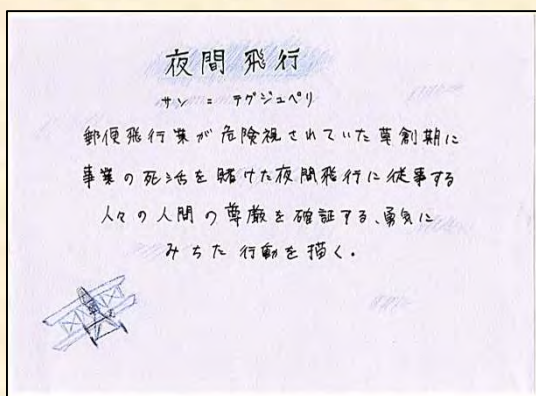 夜間飛行
サン＝テグジュペリ
郵便飛行業が危険視されていた草創期に
事業の死活を賭けた夜間飛行に従事する
人々の人間の尊厳を確証する、勇気に
みちた行動を描く.